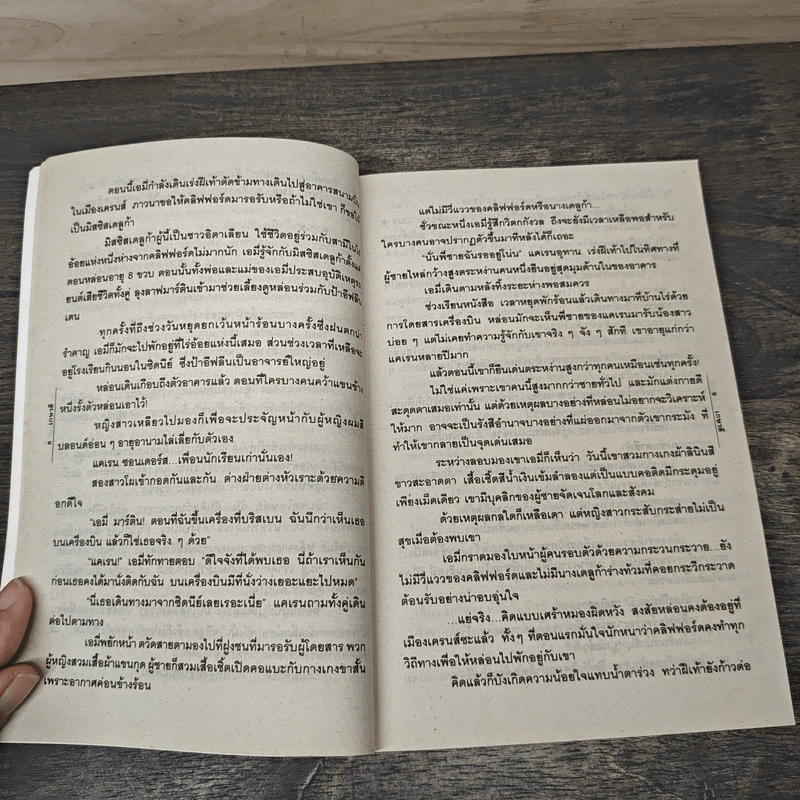 ตอนนี้เอมี่กำลังเดินเร่งฝีเท้าตัดข้ามทางเดินไปสู่อาคารสนามบิน
ในเมืองเครนส์ ภาวนาขอให้คลิฟฟอร์ดมารอรับหรือถ้าไม่ใช่เขา ก็ขอให้
เป็นมิสซิสเดลูก้า
มิสซิสเดลูก้าผู้นี้เป็นชาวอิตาเลียน ใช้ชีวิตอยู่ร่วมกับสามีในไร่
อ้อยแห่งหนึ่งห่างจากคลิฟฟอร์ดไม่มากนัก เอมี่รู้จักกับมิสซิสเดลูก้าตั้งแต่
ตอนหล่อนอายุ 8 ขวบ ตอนนั้นทั้งพ่อและแม่ของเอมี่ประสบอุบัติเหตุรถ
ยนต์เสียชีวิตทั้งคู่ ลุงลาฟมาร์ตินเข้ามาช่วยเลี้ยงดูหล่อนร่วมกับป้าอีฟลีน
เดน
ทุกครั้งที่ถึงช่วงวันหยุดยกเว้นหน้าร้อนบางครั้งซึ่งฝนตกน่า
รำคาญ เอมี่ก็มักจะไปพักอยู่ที่ไร่อ้อยแห่งนี้เสมอ ส่วนช่วงเวลาที่เหลือจะ
อยู่โรงเรียนกินนอนในซิดนีย์ ซึ่งป้าอีฟลีนเป็นอาจารย์ใหญ่อยู่
หล่อนเดินเกือบถึงตัวอาคารแล้ว ตอนที่ใครบางคนคว้าแขนข้าง
หนึ่งรั้งตัวหล่อนเอาไว้!
หญิงสาวเหลียวไปมองก็เพื่อจะประจัญหน้ากับผู้หญิงผมสี
บลอนด์อ่อน ๆ อายุอานามไล่เลี่ยกับตัวเอง
แคเรน ซอนเดอร์ส...เพื่อนนักเรียนเก่านั่นเอง!
สองสาวโผเข้ากอดกันและกัน ต่างฝ่ายต่างหัวเราะด้วยความดี
อกดีใจ
"เอมี่ มาร์ติน! ตอนที่ฉันขึ้นเครื่องที่บริสเบน ฉันนึกว่าเห็นเธอ
บนเครื่องบิน แล้วก็ใช่เธอจริง ๆ ด้วย"
"แคเรน!" เอมี่ทักทายตอบ "ดีใจจังที่ได้พบเธอ นี่ถ้าเราเห็นกัน
ก่อนเธอคงได้มานั่งติดกับฉัน บนเครื่องบินมีที่นั่งว่างเยอะแยะไปหมด"
"นี่เธอเดินทางมาจากซิดนีย์เลยเรอะเนี่ย" แคเรนถามทั้งคู่เดิน
ต่อไปตามทาง
เอมี่พยักหน้า ตวัดสายตามองไปที่ฝูงชนที่มารอรับผู้โดยสาร พวก
ผู้หญิงสวมเสื้อผ้าแขนกุด ผู้ชายก็สวมเสื้อเชิ้ตเปิดคอแบะกับกางเกงขาสั้น
เพราะอากาศค่อนข้างร้อน
แต่ไม่มีวี่แววของคลิฟฟอร์ดหรือนางเดลูก้า...
ชั่วขณะหนึ่งเอมี่รู้สึกวิตกกังวล ถึงจะยังมีเวลาเหลือพอสำหรับ
ใครบางคนอาจปรากฏตัวขึ้นมาทีหลังได้ก็เถอะ
"นั่นพี่ชายฉันรออยู่โน่น" แคเรนอุทาน เร่งฝีเท้าไปในทิศทางที่
ผู้ชายไหล่กว้างสูงตระหง่านคนหนึ่งยืนอยู่สุดมุมด้านในของอาคาร
เอมี่เดินตามหลังทิ้งระยะห่างพอสมควร
ช่วงเรียนหนังสือ เวลาหยุดพักร้อนแล้วเดินทางมาที่บ้านไร่ด้วย
การโดยสารเครื่องบิน หล่อนมักจะเห็นพี่ชายของแคเรนมารับน้องสาว
บ่อย ๆ แต่ไม่เคยทำความรู้จักกับเขาจริง ๆ จัง ๆ สักที เขาอายุแก่กว่า
แคเรนหลายปีมาก
แล้วตอนนี้เขาก็ยืนเด่นตระหง่านสูงกว่าทุกคนเหมือนเช่นทุกครั้ง!
ไม่ใช่แค่เพราะเขาคนนี้สูงมากกว่าชายทั่วไป และมักแต่งกายดี
สะดุดตาเสมอเท่านั้น แต่ด้วยเหตุผลบางอย่างที่หล่อนไม่อยากจะวิเคราะห์
ให้มาก อาจจะเป็นรังสีอำนาจบางอย่างที่แผ่ออกมาจากตัวเขากระมัง ที่
ทำให้เขากลายเป็นจุดเด่นเสมอ
ระหว่างลอบมองเขาเอมี่ก็เห็นว่า วันนี้เขาสวมกางเกงผ้าลินินสี
ขาวสะอาดตา เสื้อเชิ้ตสีน้ำเงินเข้มลำลองแต่เป็นแบบคอติดมีกระดุมอยู่
เพียงเม็ดเดียว เขามีบุคลิกของผู้ชายจัดเจนโลกและสังคม
ด้วยเหตุผลกลใดก็เหลือเดา แต่หญิงสาวกระสับกระส่ายไม่เป็น
สุขเมื่อต้องพบเขา
เอมี่กราดมองใบหน้าผู้คนรอบตัวด้วยความกระวนกระวาย...ยัง
ไม่มีวี่แววของคลิฟฟอร์ดและไม่มีนางเดลูก้าร่างท้วมที่คอยกระวีกระวาด
ต้อนรับอย่างน่าอบอุ่นใจ
...แย่จริง...คิดแบบเศร้าหมองผิดหวัง สงสัยหล่อนคงต้องอยู่ที่
เมืองเครนส์ซะแล้ว ทั้งๆ ที่ตอนแรกมั่นใจนักหนาว่าคลิฟฟอร์ดคงทำทุก
วิถีทางเพื่อให้หล่อนไปพักอยู่กับเขา
คิดแล้วก็บังเกิดความน้อยใจแทบน้ำตาร่วง ทว่าฝีเท้ายังก้าวต่อ